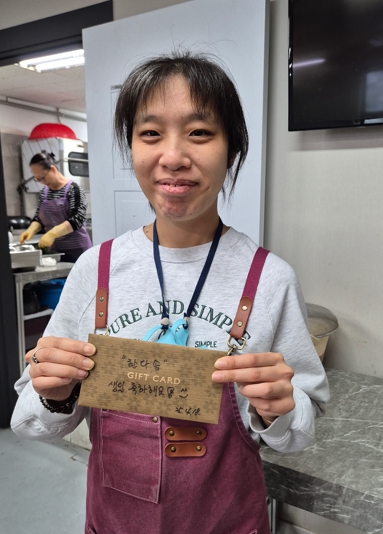 URE AND SIMP
SIMPLE
"한다솜"
GIFT CARD
생일 축하해요